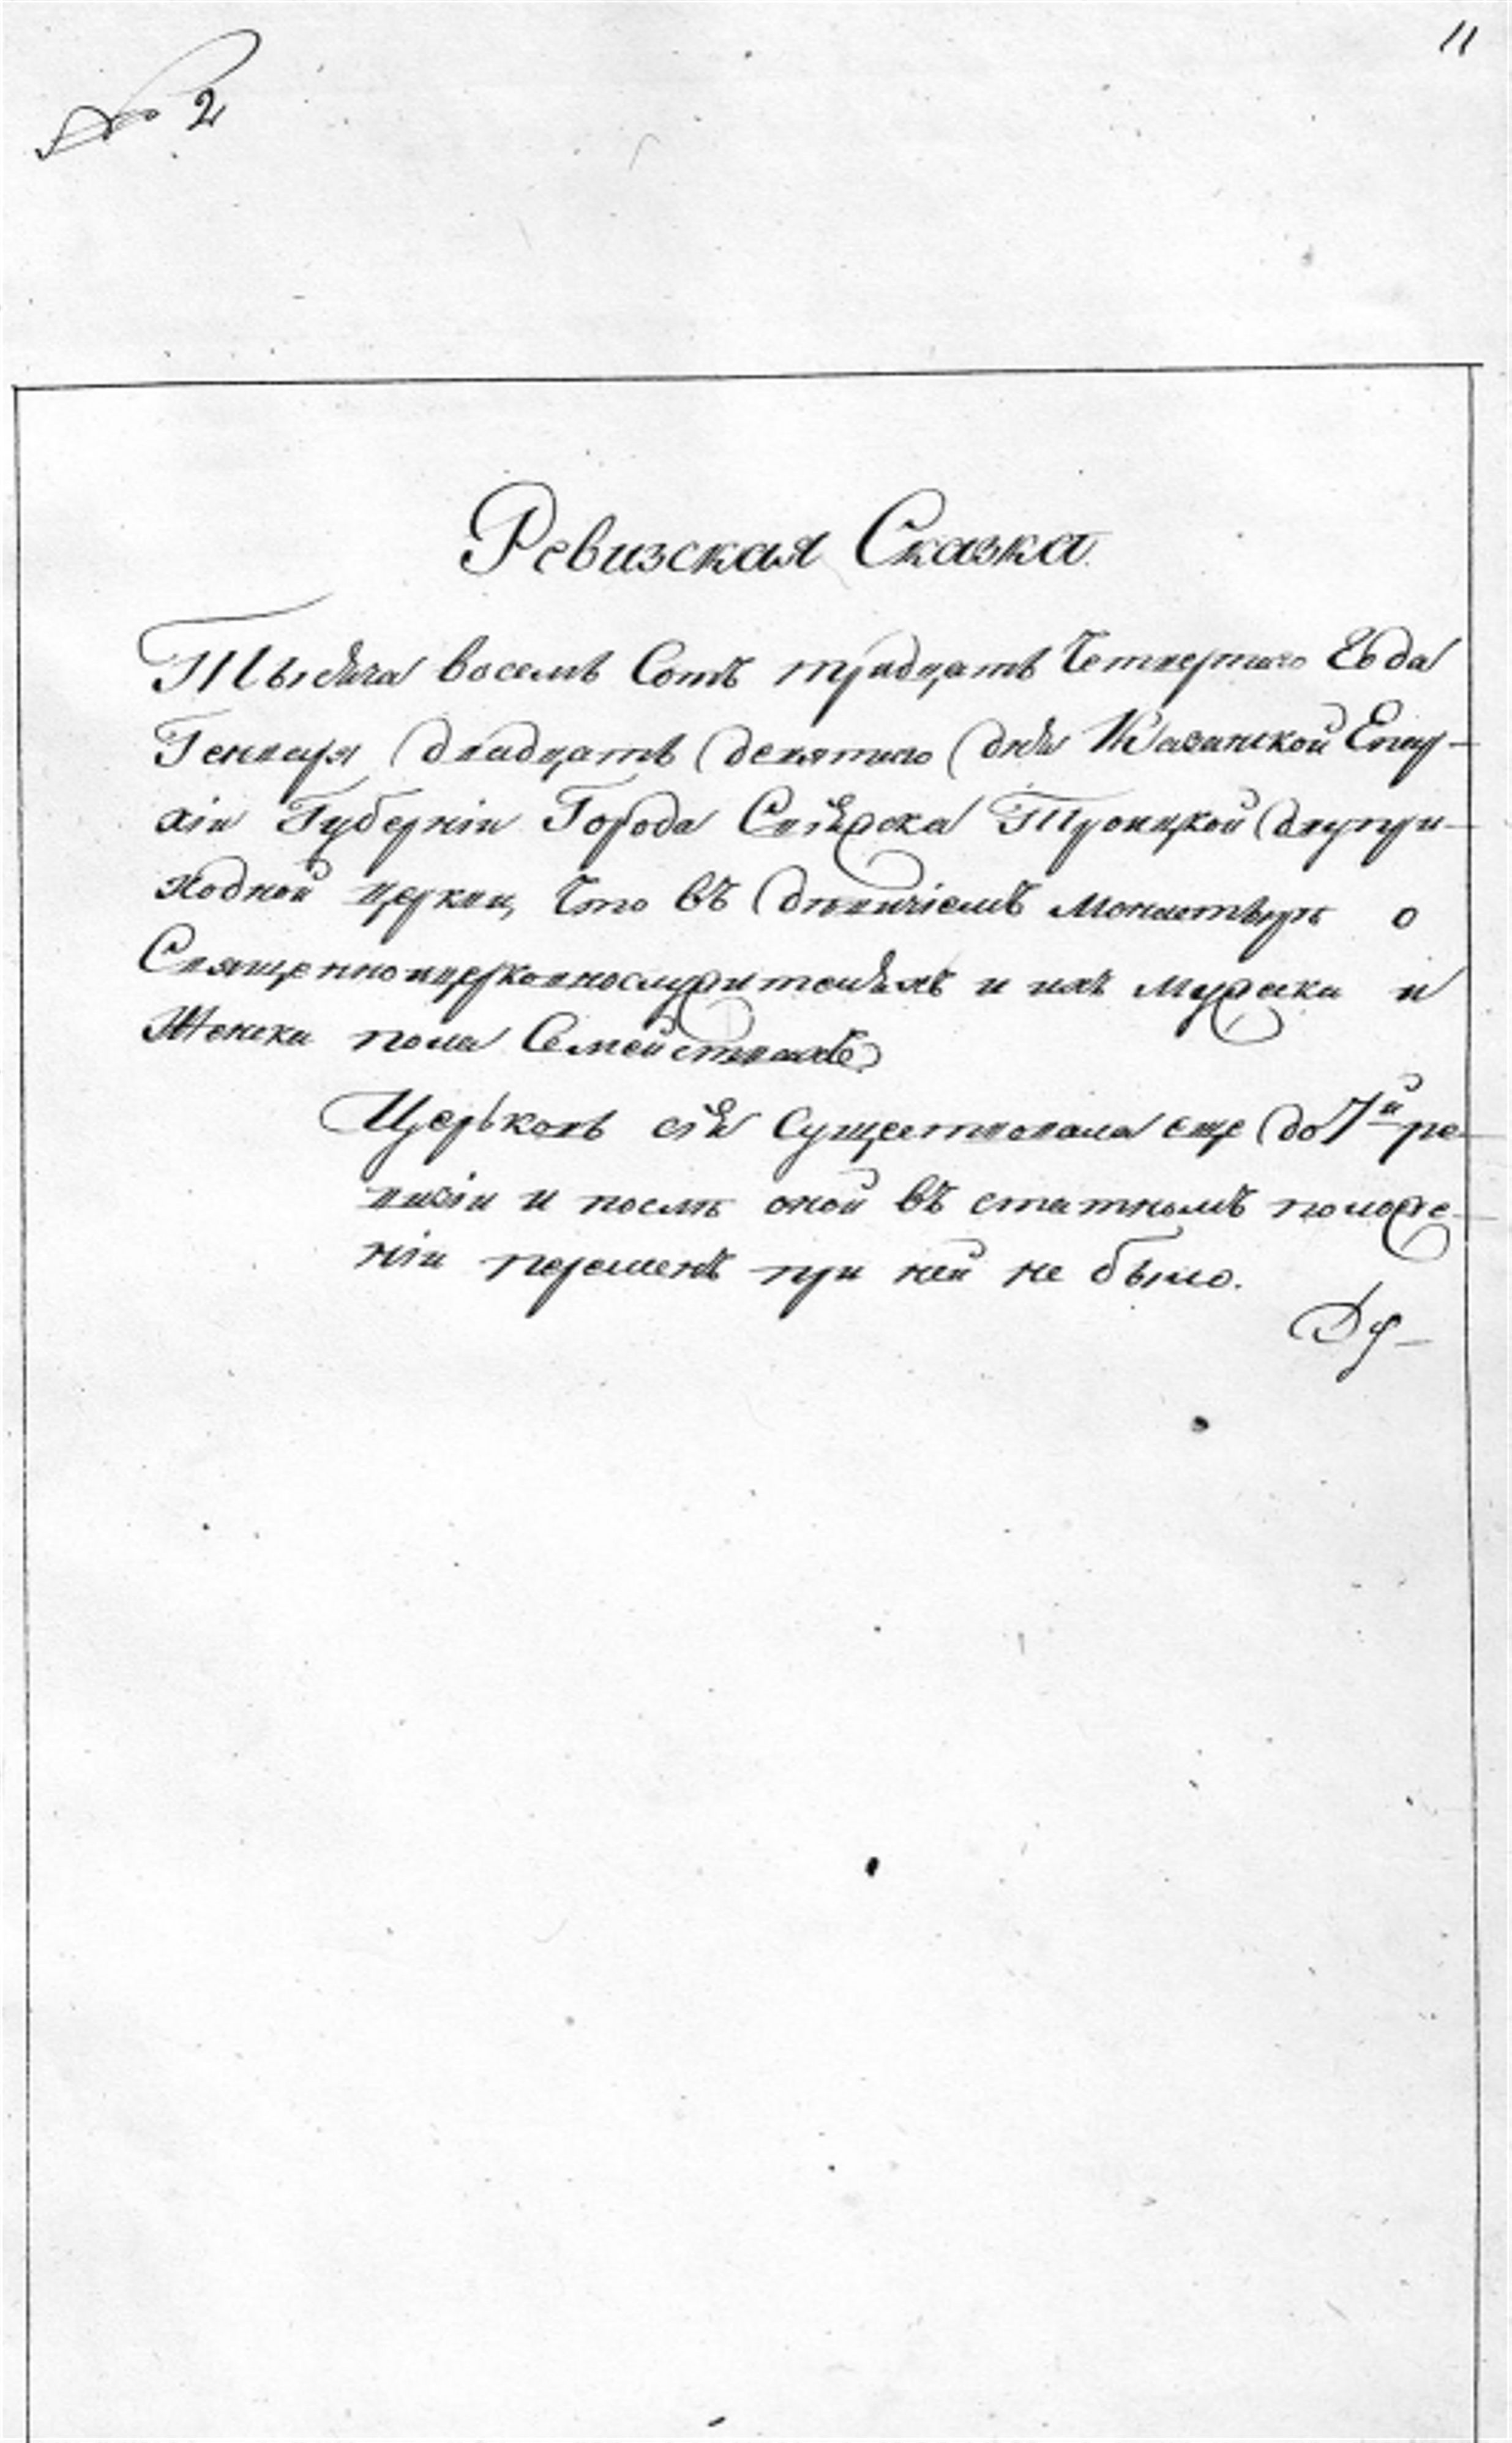 11
№ 2
Ревизская Сказка.
Тысяча восемь Сотъ тридцать Четвертаго Года
Генваря двадцать девятаго дня Казанской Епар-
хіи Губерніи Города Свіяжска Троицкой двупри-
ходной церкви, Что въ девичіемъ Монастырѣ о
Священноцерковнослужителяхъ и ихъ Мужеска и
Женска пола Семействахъ
Церьковь сія Существовала еще до 7й ре-
визіи и послѣ оной въ статномъ положе-
ніи перемѣнъ при ней не было.